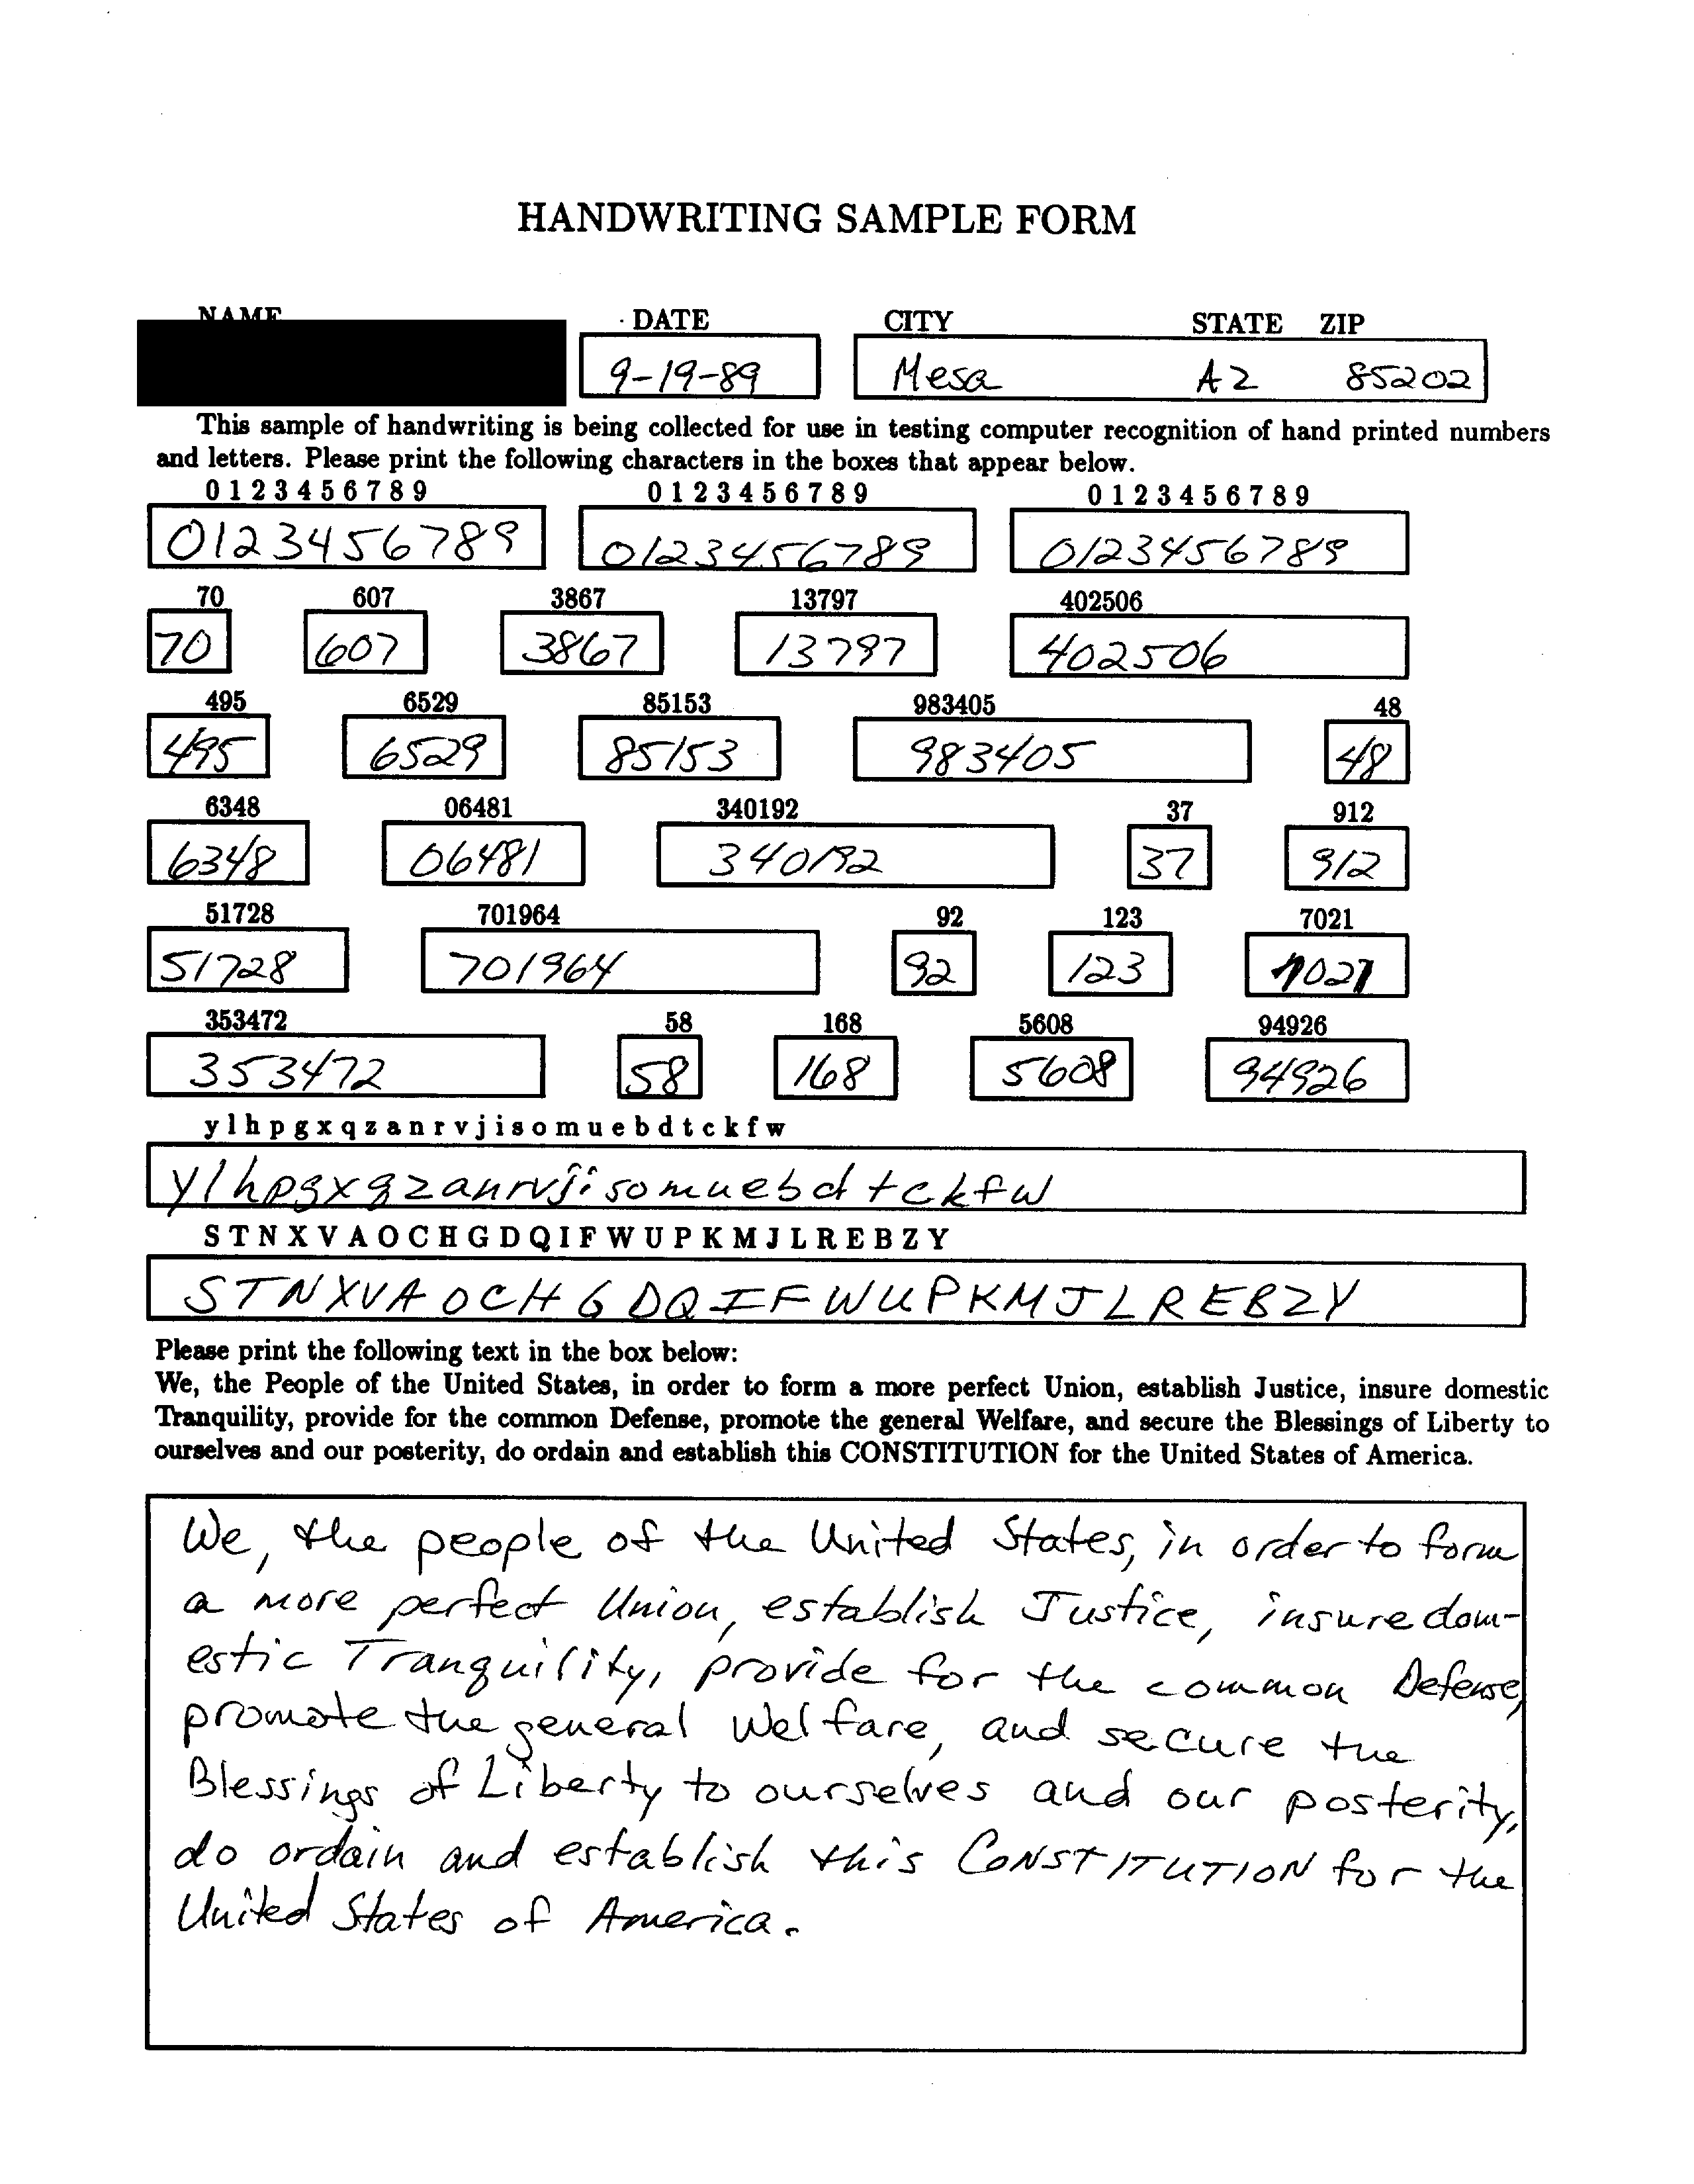 HANDWRITING SAMPLE FORM
NAME DATE CITY STATE ZIP
9-19-89 Mesa AZ 85202
This sample of handwriting is being collected for use in testing computer recognition of hand printed numbers
and letters. Please print the following characters in the boxes that appear below.
0 1 2 3 4 5 6 7 8 9 0 1 2 3 4 5 6 7 8 9 0 1 2 3 4 5 6 7 8 9
0123456789 0123456789 0123456789
70 607 3867 13797 402506
70 607 3867 13797 402506
495 6529 85153 983405 48
495 6529 85153 983405 48
6348 06481 340192 37 912
6348 06481 340192 37 912
51728 701964 92 123 7021
51728 701964 92 123 7021
353472 58 168 5608 94926
353472 58 168 5608 94926
y l h p g x q z a n r v j i s o m u e b d t c k f w
ylhpgxqzanrvjisomuebdtckfw
S T N X V A O C H G D Q I F W U P K M J L R E B Z Y
STNXVAOCHGDQIFWUPKMJLREBZY
Please print the following text in the box below:
We, the People of the United States, in order to form a more perfect Union, establish Justice, insure domestic
Tranquility, provide for the common Defense, promote the general Welfare, and secure the Blessings of Liberty to
ourselves and our posterity, do ordain and establish this CONSTITUTION for the United States of America.
We, the people of the United States, in order to form
a more perfect Union, establish Justice, insure dom-
estic Tranquility, provide for the common Defense,
promote the general Welfare, and secure the
Blessings of Liberty to ourselves and our posterity,
do ordain and establish this CONSTITUTION for the
United States of America.